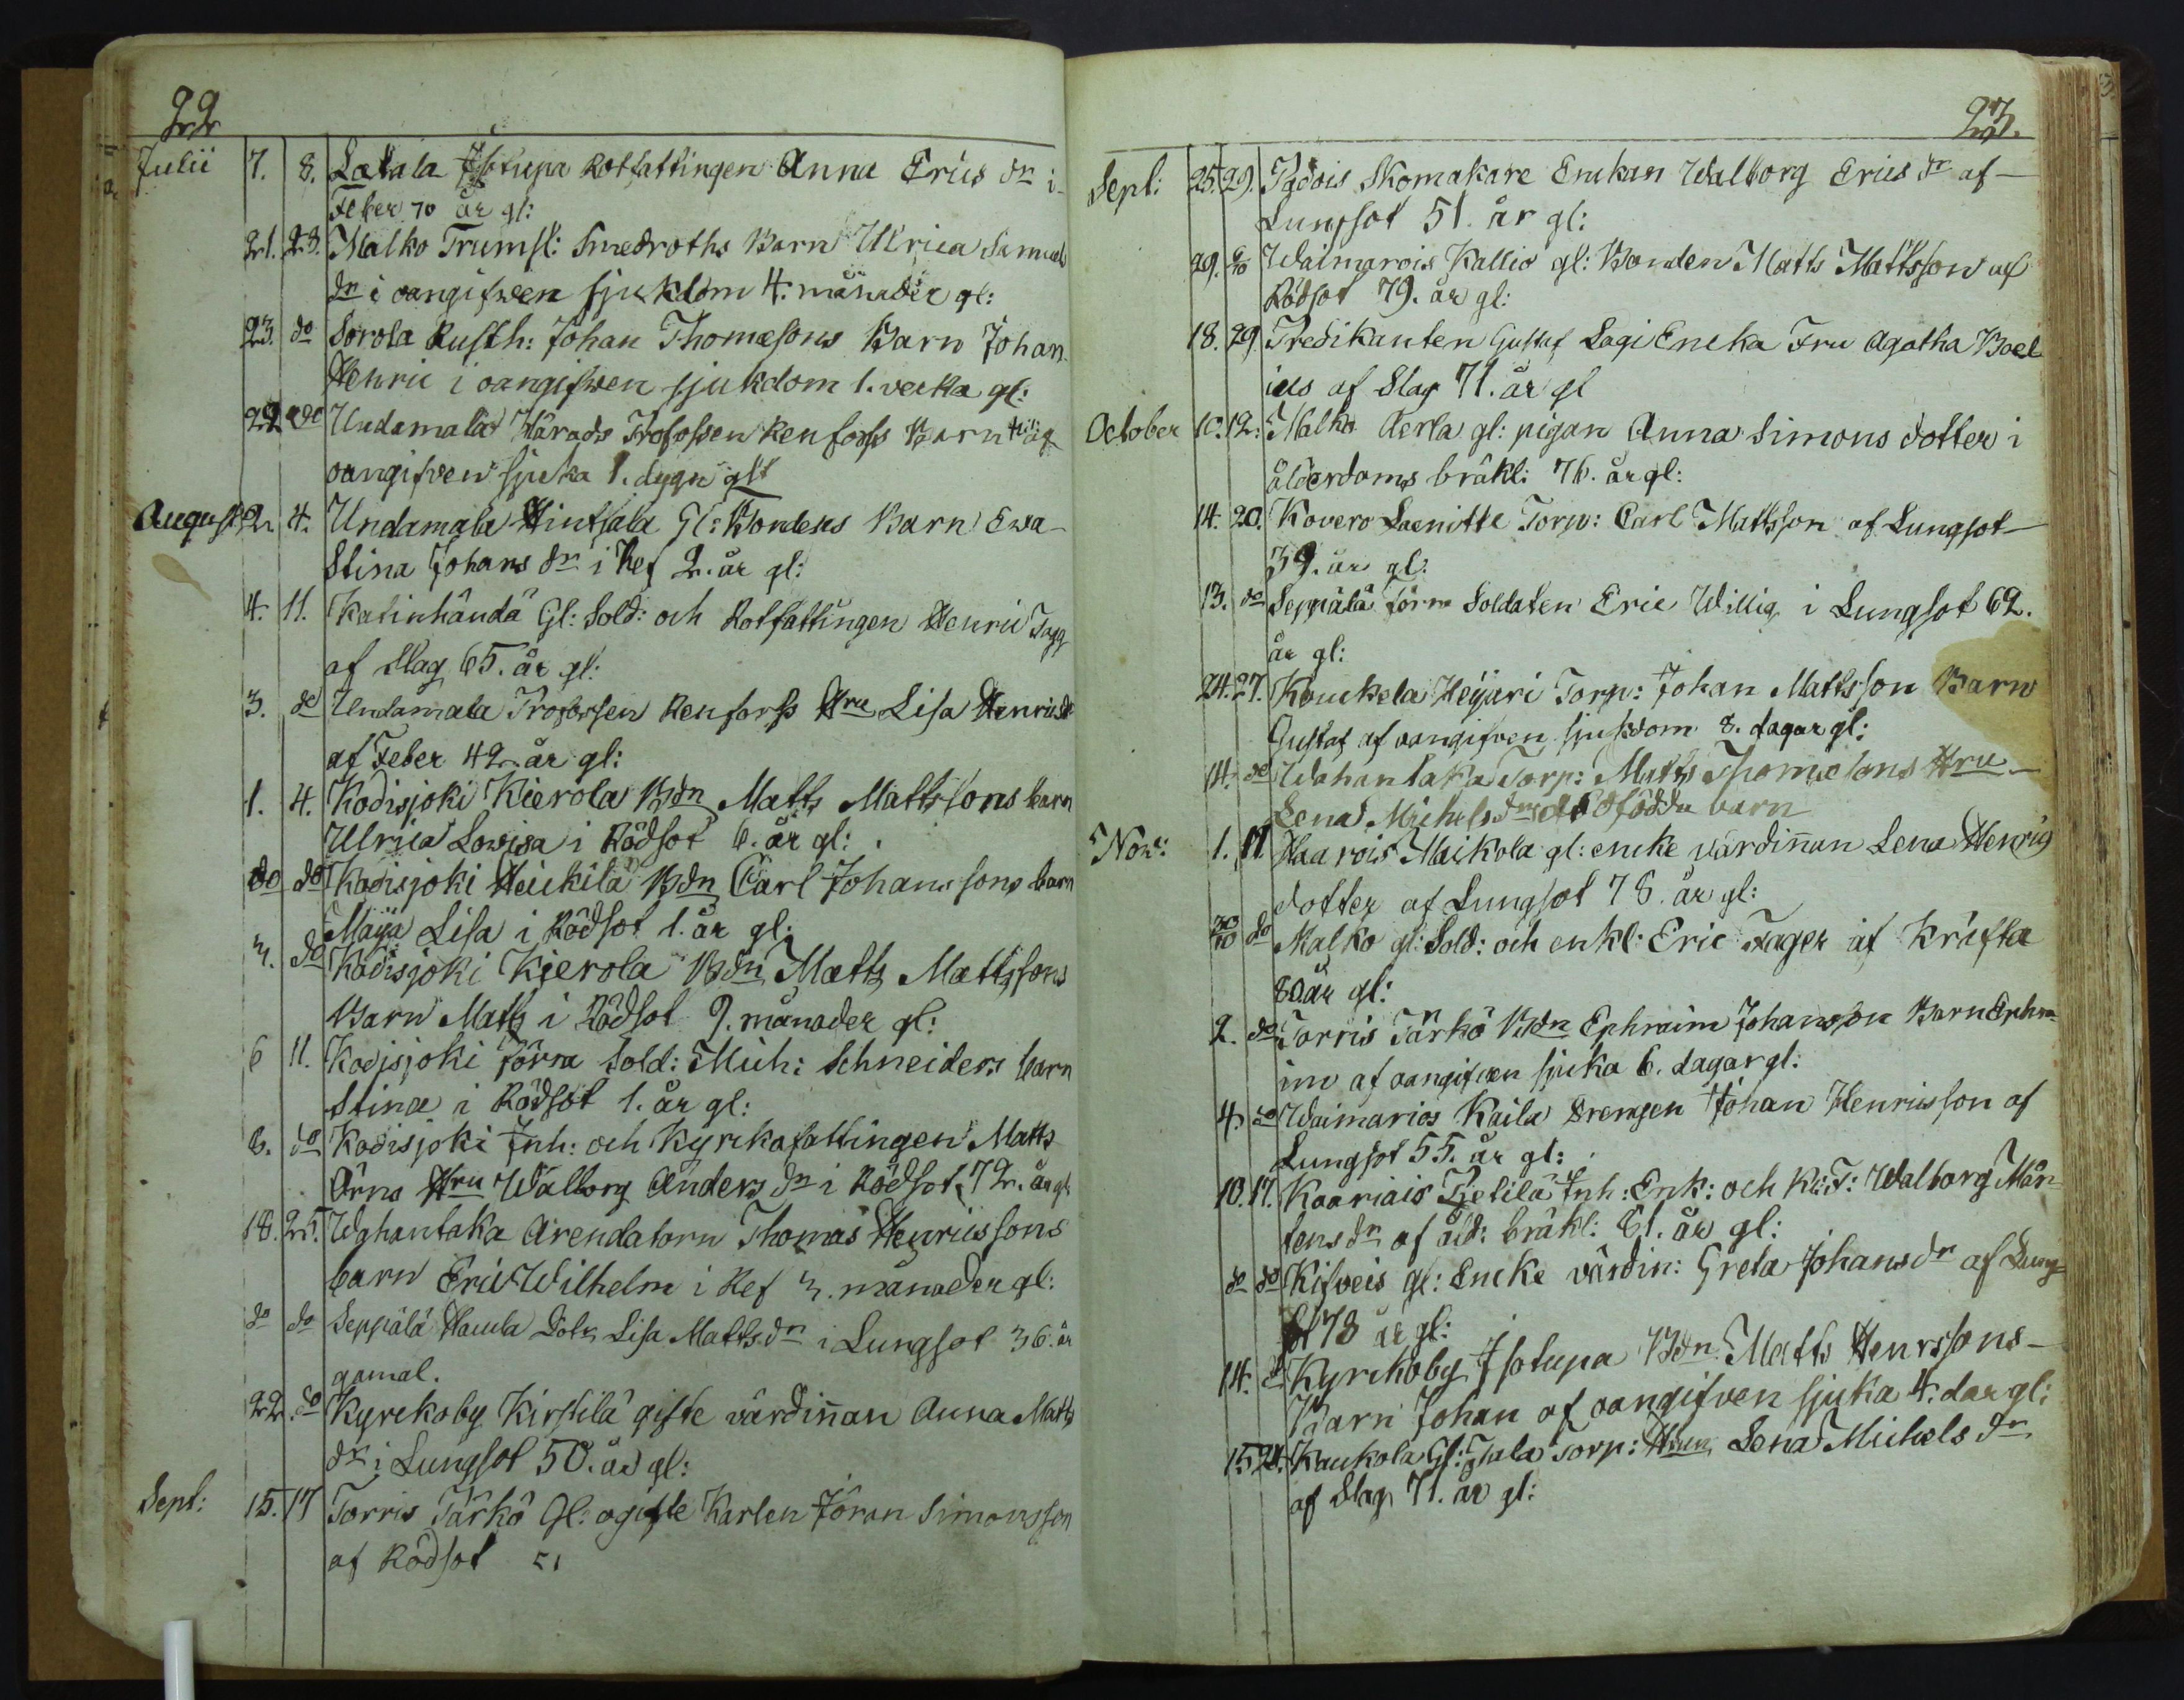 22
Julii 7. 8. Latala Isotupa Rotfattingen Anna Erics dr i
Feber 70 år gl:
21. 23. Malko Trumsl: Smedroths Barn Ulrica Samuels
dr i oangifven sjukdom 4. månader gl:
23. do Sorola Rusth: Johan Thomæsons Barn Johan
Henric i oangifven sjukdom 1. vecka gl:
22. do Undamala Härads Profossen Renforss Barn af
oangifven sjuka 1. dygn glt
August 2. 4. Undamala Hintsala Gl: Bondens Barn Ewa
Stina Johans dr i Ref 2. år gl:
4. 11. Katinhändä Gl: Sold: och Rotfattingen Henric Tagg
af Slag 65. år gl:
3. do Undamala Profossen Renforss Hru Lisa Henricsdr
af Feber 42 år gl:
1. 4. Kodisjoki Kierola Bdn Matts Mattssons barn
Ulrica Lovisa i Rödsot 6. år gl:
do do Kodisjoki Heickilä Bdn Carl Johanssons barn
Maija Lisa i Rödsot 1. år gl:
3. do Kodisjoki Kierola Bdn Matts Mattssons
Barn Matts i Rödsot 9. månader gl:
6 11. Kodisjoki förra Sold: Mich: Schneiders barn
Stina i Rödsot 1. år gl:
6. do Kodisjoki Inh: och Kyrckofattingen Matts
Örns Hru Walborg Anders dr i Rödsot 72. år gl
18. 25. Wahantaka Arendatorn Thomas Henricssons
barn Eric Wilhelm i Ref 3. månader gl:
do do Seppälä Hamla Dotr Lisa Matts dr i Lungsot 36. år
gamal.
22 do Kyrckoby Kirstilä gifte värdinnan Anna Matts
dr i Lungsot 50. år gl:
Sept: 15. 17 Torris Tärkö Gl: ogifte Karlen Jöran Simonsson
af Rödsot 51
23.
Sept: 25. 29. Pådois Skomakare Enckan Walborg Erics dr af
Lungsot 51. år gl:
29. Waimarois Kallio gl: Bonden Matts Mattsson af
Rödsot 79. år gl:
18. 29. Predikanten Gustaf Lagi Encka Fru Agatha Boel
ius af Slag 71. år gl
October 10. 12: Malko Aerla gl: pigan Anna Simons dotter i
ålderdoms bräkl: 76. år gl:
14. 20. Kovero Laenitte Torp: Carl Mattsson af Lungsot
39. år gl:
13. do Seppälä förra Soldaten Eric Willig i Lungsot 62.
år gl:
24. 27. Kouckela Heijari Torp: Johan Mattsson Barn
Gustaf af oangifven sjukdom 8. dagar gl:
14. do Wahantaka Torp: Matts Thomæsons Hru
Lena Michels drs dödfödda barn
Nov: 1. 11 Haarois Maikola gl: encke värdinnan Lena Henrics
dotter af Lungsot 78. år gl:
30/10 do Malko gl: Sold: och enkl: Eric Fager af Kräfta
80. år gl:
2. do Torris Tärkö Bdn Ephraim Johansson Barn Ephra
im af oangifven sjuka 6. dagar gl:
4. do Waimarios Kaila Drengen Johan Henricsson af
Lungsot 55. år gl:
10. 17. Kaariais Pietilä Inh: Enk: och K:F: Walborg Mår
tens dr af åld: bräkl: 81. år gl:
do do Kifveis gl: Encke värdin: Greta Johans dr af Lung
sot 78 år gl:
14. do Kyrckoby Isotupa Bdn Matts Henrssons
Barn Johan af oangifven sjuka 4. dar gl:
15. 24. Kaukola Gl: Tala Torp: Hru Lena Michels dr
af Slag 71. år gl: